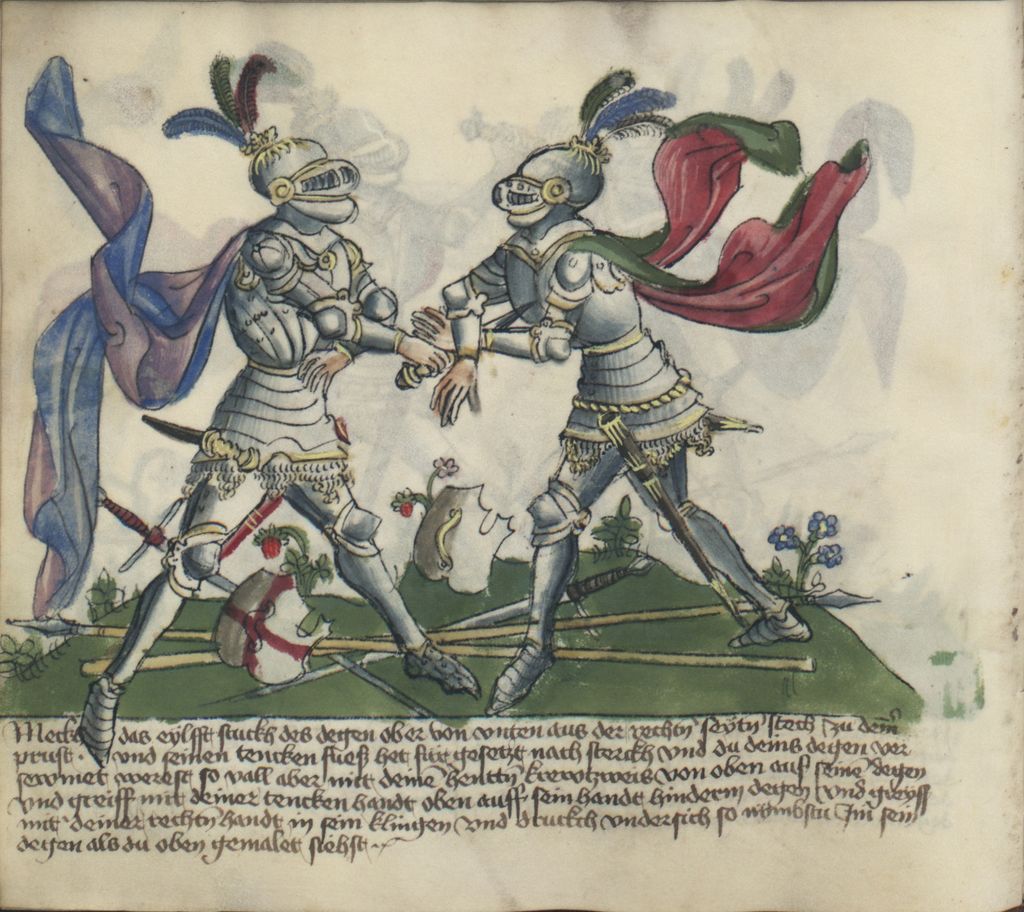 Merckh das eylfft stuckh des degen ob er von vnten aus der rechtn seytn stech zu deiñ
prust · vnd seinen tencken fueß het für gesetzt nach sterckh vnd du deins degen ver
sewmet werest so vall aber mit deinē henttn krewtzweis von oben auf seinē degen
vnd greiff mit deiner tencken handt oben auff sein handt hinderm degen vnd greyff
mit deiner rechtn handt in sein klingen vnd druckh vndersich so nÿmbstu Im sein
degen als du oben gemalet siehst